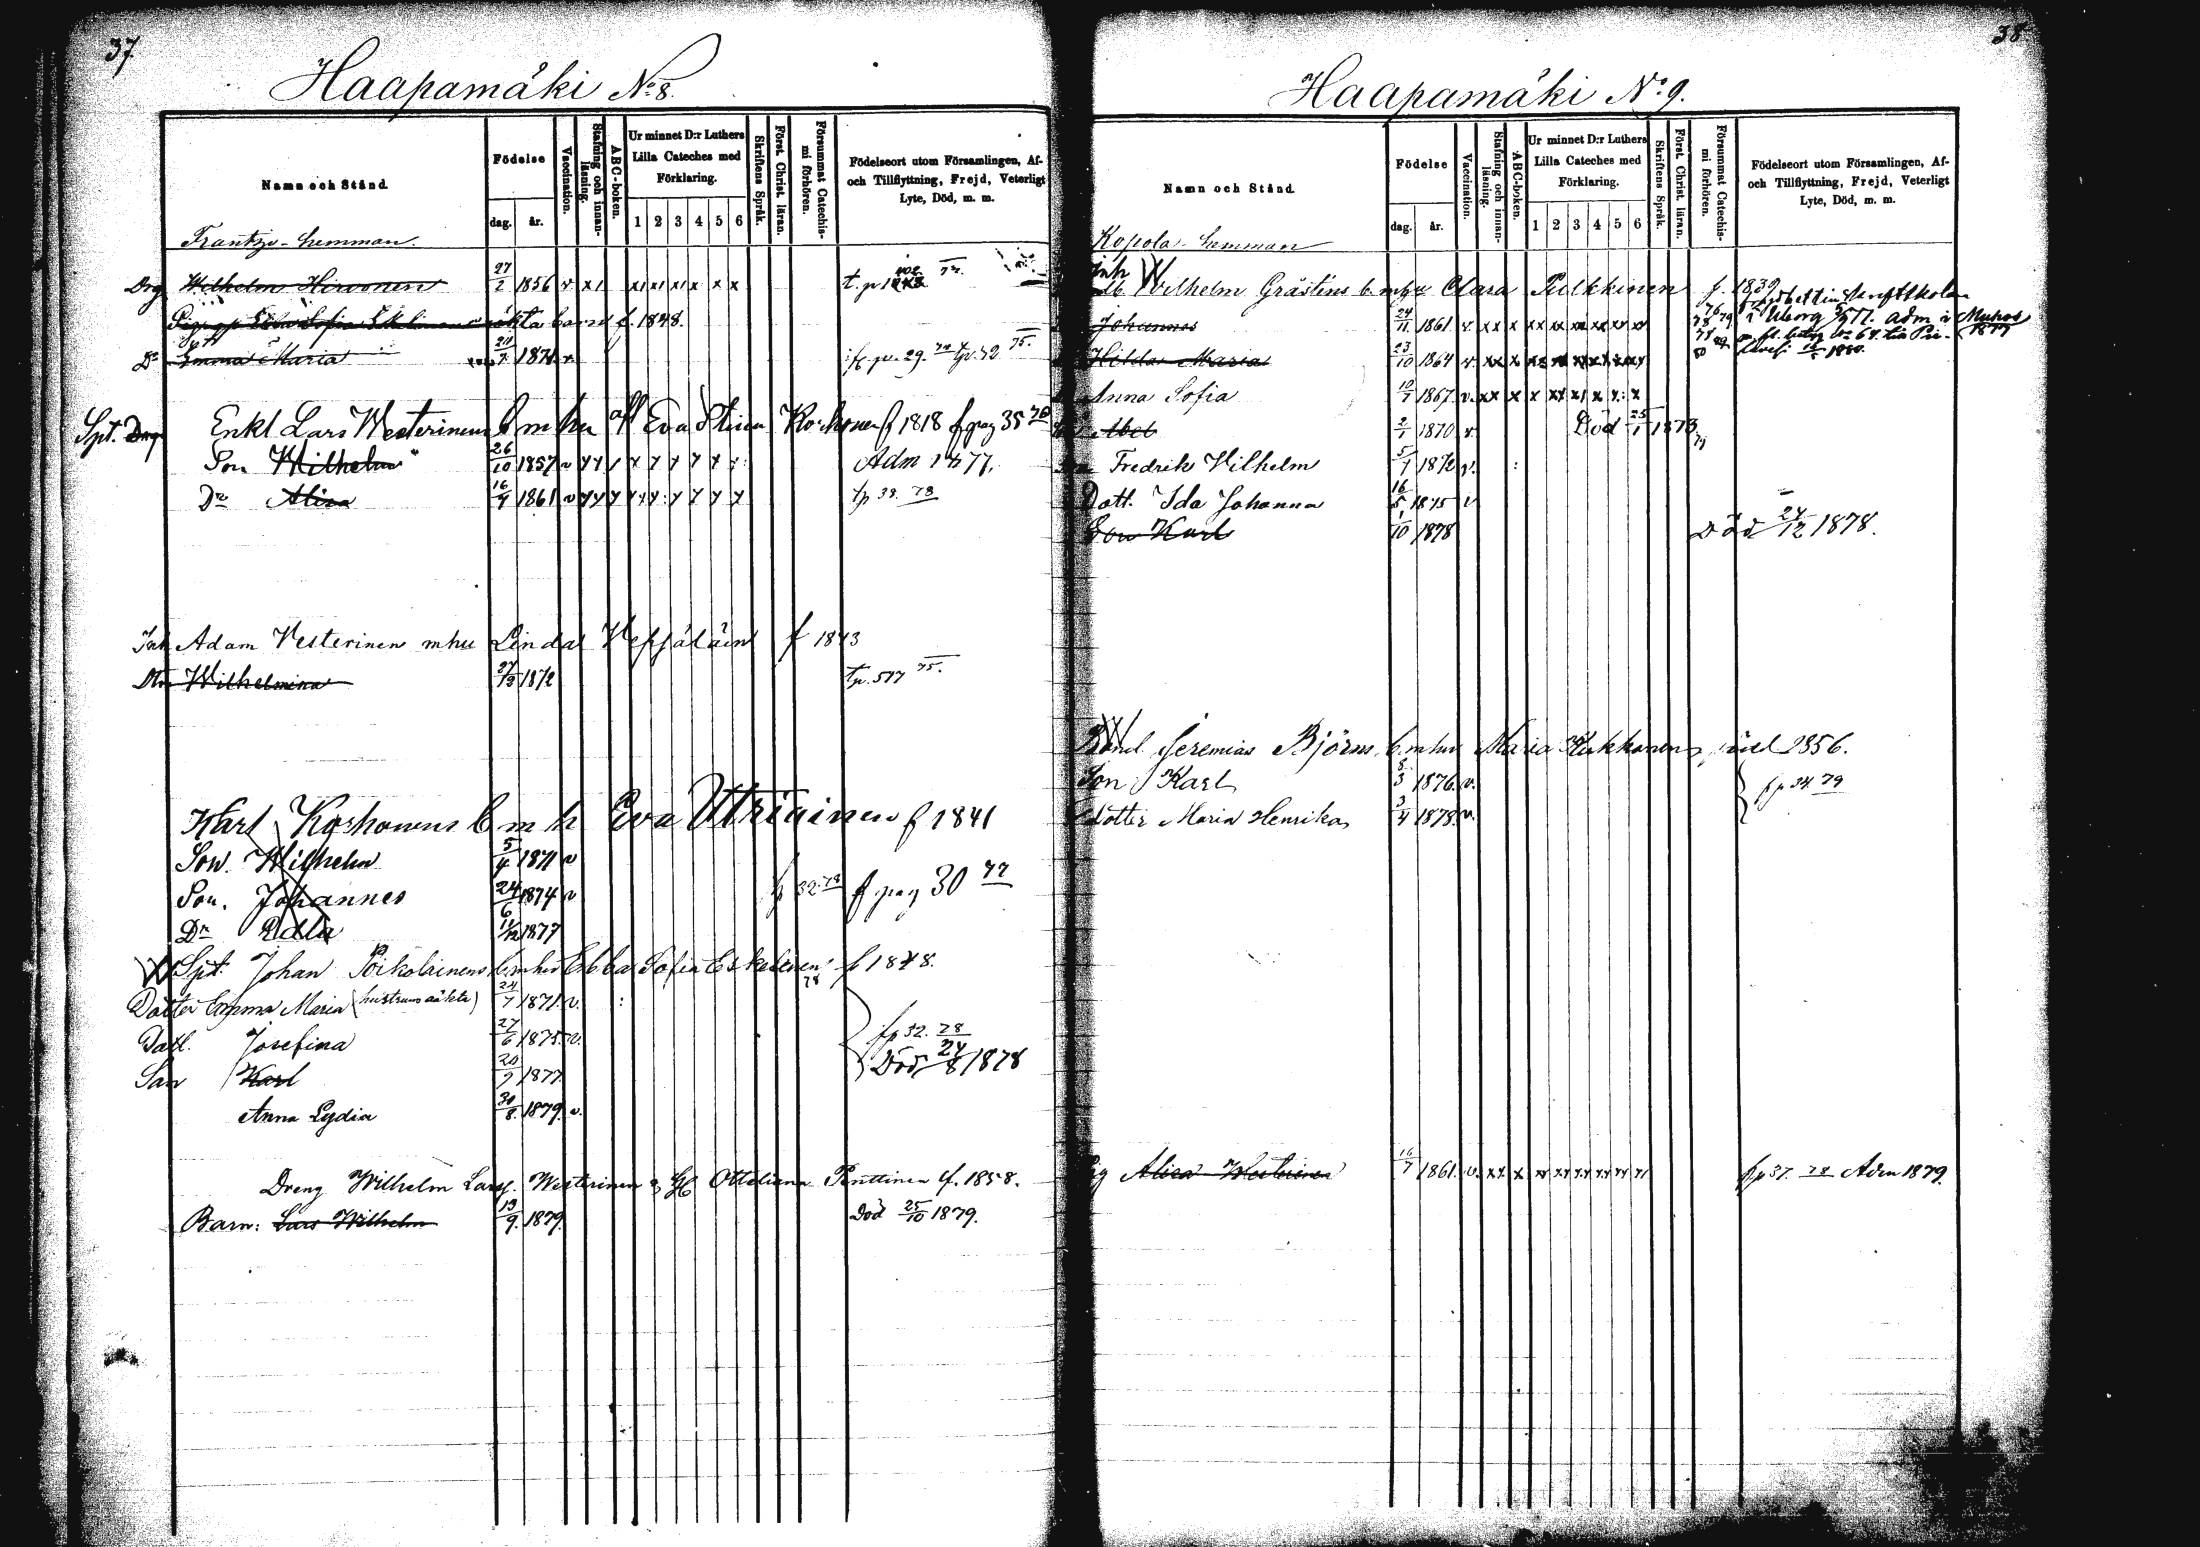 37.
Haapamäki No 8.
Namn och Stånd
Födelse
dag. år.
Vaccination.
Stafning och innan-läsning.
ABC-boken.
Ur minnet D:r Luthers Lilla Cateches med Förklaring.
1 2 3 4 5 6
Skriftens Språk.
Först. Christ. läran.
Försummat Catechis-mi förhören.
Födelseort utom Församlingen, Af- och Tillflyttning, Frejd, Veterligt Lyte, Död, m. m.
Frantzs- hemman.
Drg Wilhelm Hirvonen 27/2 1856 v x1 x1 x1 x1 x x
Sofia oäkta barn f. 1848.
Dr Emma Maria 1871 v fr. p. 29. 75.
Spt. Drg Enkl Lars Westerinens b m hu Eva Stina Korhonen f 1818 f pag 35 78
Son Wilhelm 26/10 1857 v Adm 1877.
Dr Alisa 16/9 1861 v tp 38. 78
Inh Adam Vesterinen mhu Linda Vepsäläin f 1843
Dtr Wilhelmina 27/12 1872 tp. 517 75.
Karl Koshonens b m h Eva Utriainen f 1841
Son. Wilhelm 5/4 1871 v
Son. Johannes 24/6 1874 v p 32. 78 f pag 30 77
Dr Edla 11/12 1877
Spt. Johan Poikolainens b. m hu Ebba Sofia Eskelinen f 1848.
78
Dotter Emma Maria (hustruns oäkta) 24/7 1871 v.
Dott. Josefina 27/6 1875 v. fp 32. 78
Son Karl 20/7 1877 Död 24/8 1878
Anna Lydia 30/8. 1879. v.
Dreng Wilhelm Larss. Westerinen & H Otteliana Penttinen f. 1858.
Barn: Lars Wilhelm 13/9. 1879. Död 25/10 1879.
38
Haapamäki No 9.
Namn och Stånd.
Födelse
dag. år.
Vaccination.
Stafning och innan-läsning.
ABC-boken.
Ur minnet D:r Luthers Lilla Cateches med Förklaring.
1 2 3 4 5 6
Skriftens Språk.
Först. Christ. läran.
Försummat Catechis-mi förhören.
Födelseort utom Församlingen, Af- och Tillflyttning, Frejd, Veterligt Lyte, Död, m. m.
Kopola- hemman
Inh Wilhelm Gråstens b. mhu Clara Pulkkinen f. 1839
Johannes 24/11. 1861. v. xx x xx xx xx xx xx xx
Hilda Maria 23/10 1864 v. xx x
Anna Sofia 10/7 1867. v. xx x
Abel 2/1 1870 v. Död 25/1 1873
Fredrik Vilhelm 5/1 1872 v.
Dott. Ida Johanna 16/5 1875 v
Son Karl 1/10 1878 Död 24/12 1878.
Bond. Jeremias Björns b. m hu Maria Kukkonen, född 1856.
Son Karl 8/3 1876. v. fp 34. 79
Dotter Maria Henrika 3/4 1878. v.
Pig Alisa Westerinen 16/7 1861. v. xx x xx xx xx xx xx xx fp 37. 78 Adm 1879.